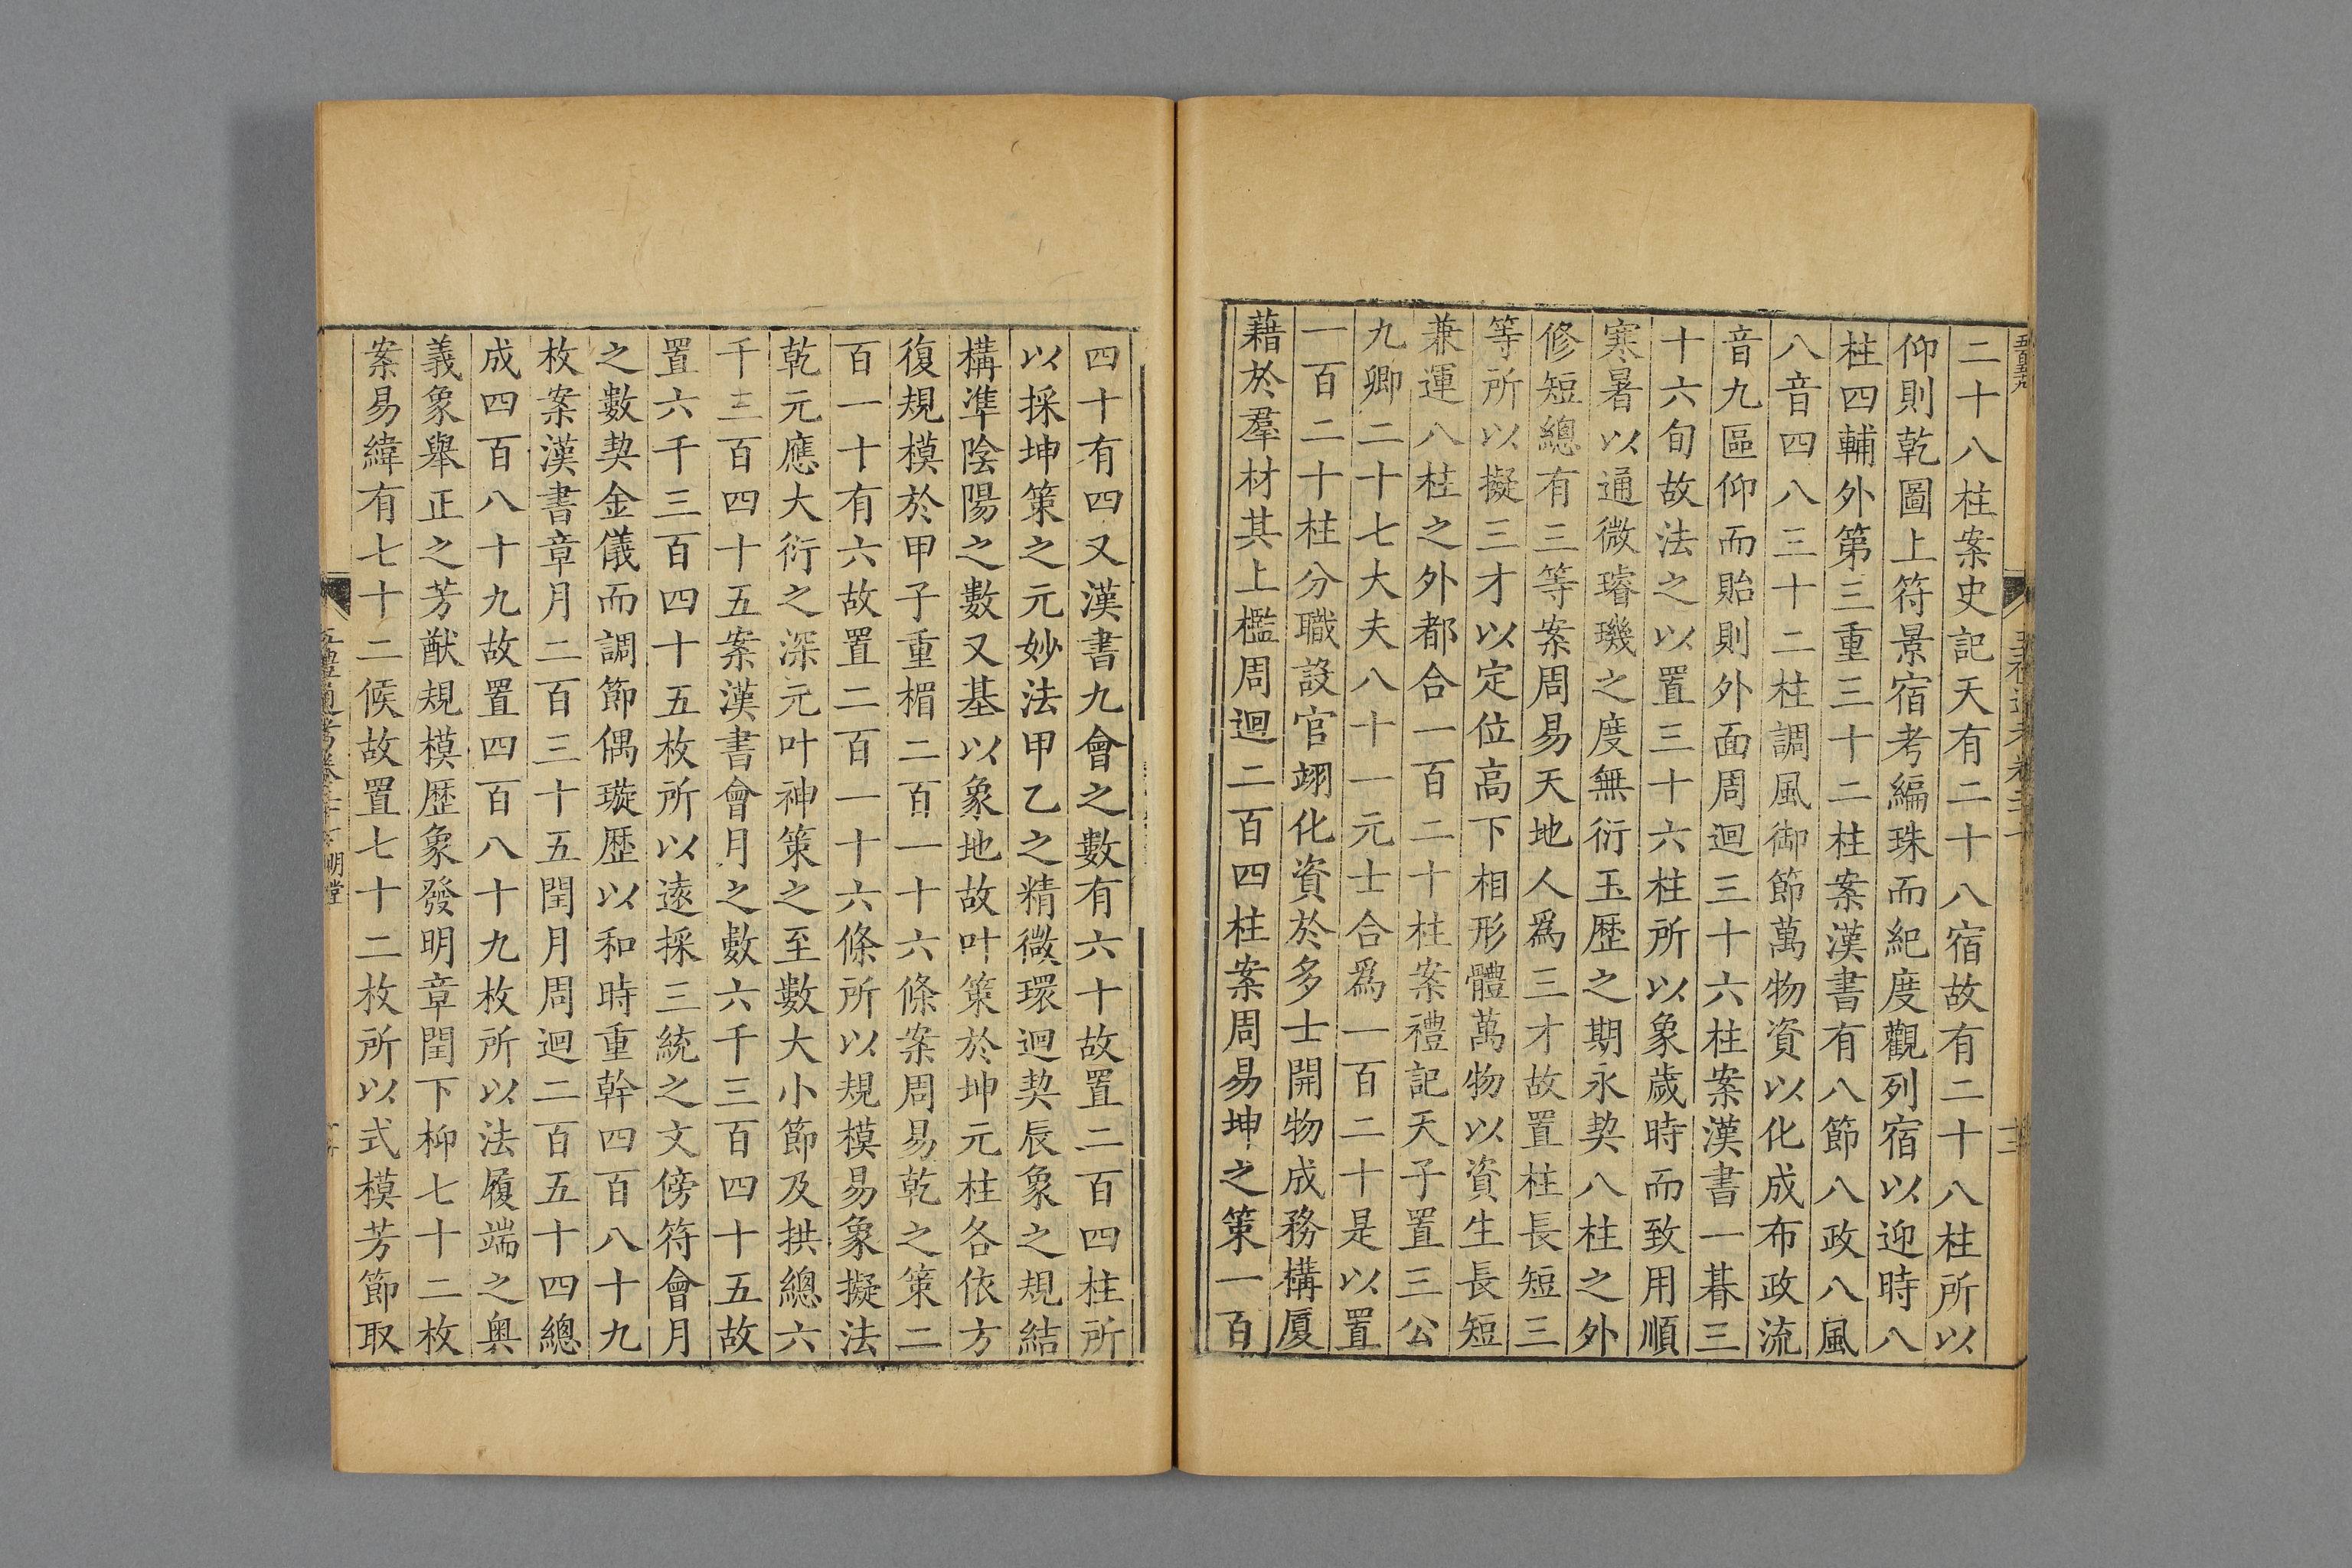 二十八柱案史記天有二十八宿故有二十八柱所以
仰則乾圖上符景宿考編珠而紀度觀列宿以迎時八
柱四輔外第三重三十二柱案漢書有八節八政八風
八音四八三十二柱調風御節萬物資以化成布政流
音九區仰而貽則外面周迴三十六柱案漢書一朞三
十六旬故法之以置三十六柱所以象歲時而致用順
寒暑以通微璿璣之度無衍玉歷之期永契八柱之外
修短總有三等案周易天地人爲三才故置柱長短三
等所以擬三才以定位高下相形體萬物以資生長短
兼運八柱之外都合一百二十柱案禮記天子置三公
九卿二十七大夫八十一元士合爲一百二十是以置
一百二十柱分職設官翊化資於多士開物成務構厦
藉於羣材其上檻周迴二百四柱案周易坤之策一百
四十有四又漢書九會之數有六十故置二百四柱所
以採坤策之元妙法甲乙之精微環迴契辰象之規結
構準陰陽之數又基以象地故叶策於坤元柱各依方
復規模於甲子重楣二百一十六條案周易乾之策二
百一十有六故置二百一十六條所以規模易象擬法
乾元應大衍之深元叶神策之至數大小節及拱總六
千三百四十五案漢書會月之數六千三百四十五故
置六千三百四十五枚所以遠採三統之文傍符會月
之數契金儀而調節偶璇歷以和時重幹四百八十九
枚案漢書章月二百三十五閏月周迴二百五十四總
成四百八十九故置四百八十九枚所以法履端之奥
義象舉正之芳猷規模歷象發明章閏下桺七十二枚
案易緯有七十二候故置七十二枚所以式模芳節取
五禮通考卷二十六 明堂